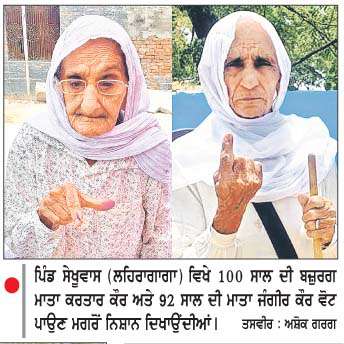 ਪਿੰਡ ਸੇਖੂਵਾਸ (ਲਹਿਰਾਗਾਗਾ) ਵਿਖੇ 100 ਸਾਲ ਦੀ ਬਜ਼ੁਰਗ
ਮਾਤਾ ਕਰਤਾਰ ਕੌਰ ਅਤੇ 92 ਸਾਲ ਦੀ ਮਾਤਾ ਜੰਗੀਰ ਕੌਰ ਵੋਟ
ਪਾਉਣ ਮਗਰੋਂ ਨਿਸ਼ਾਨ ਦਿਖਾਉਂਦੀਆਂ। ਤਸਵੀਰ : ਅਸ਼ੋਕ ਗਰਗ